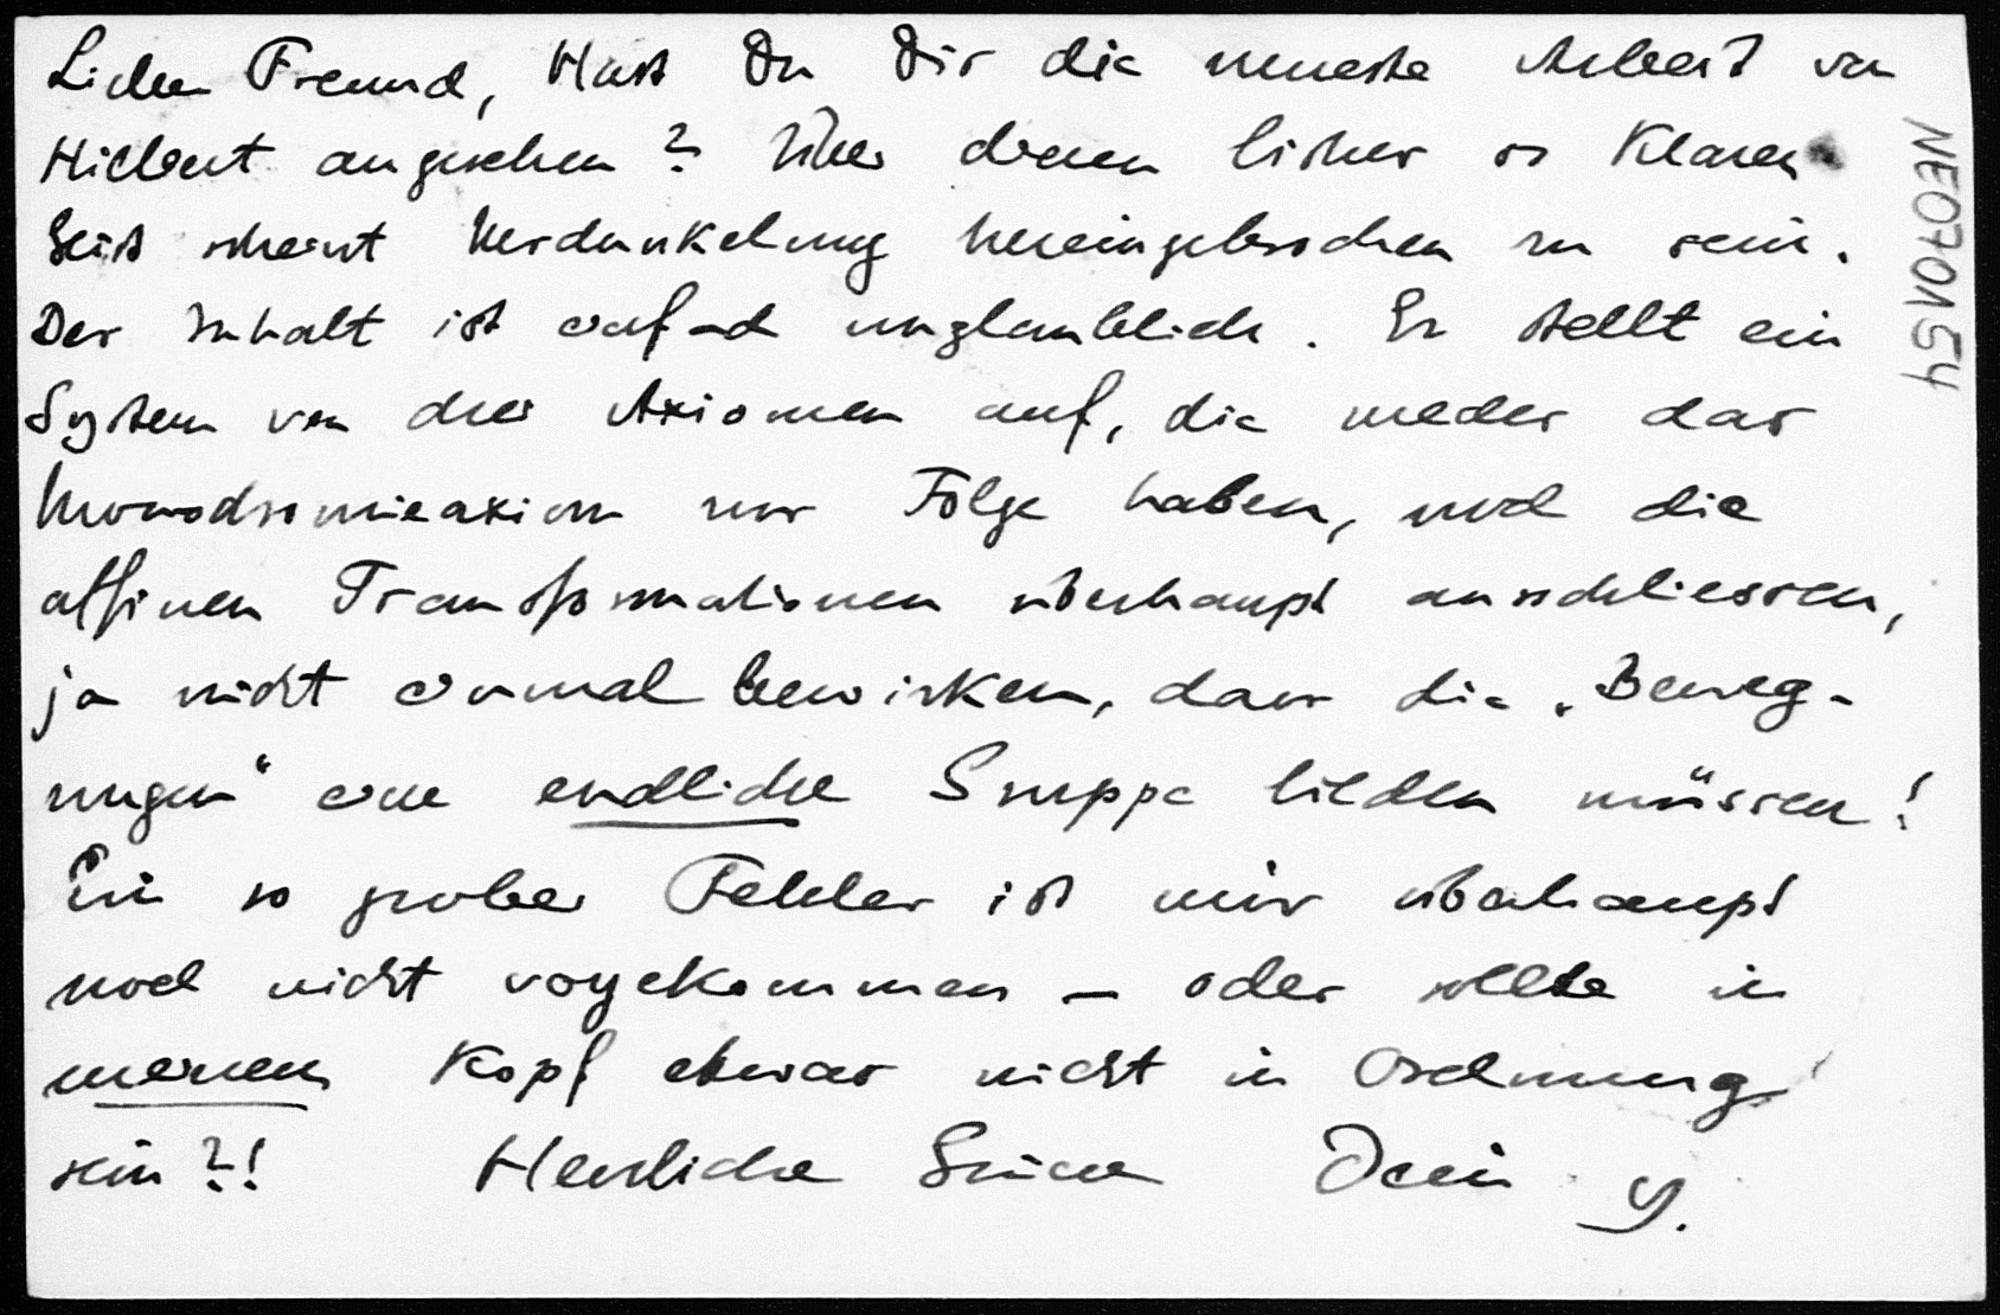 Lieber Freund, Hast Du Dir die neueste Arbeit von
Hilbert angesehen? Über diesen bisher so klaren
Geist scheint Verdunkelung hereingebrochen zu sein.
Der Inhalt ist einfach unglaublich. Er stellt ein
System von drei Axiomen auf, die weder das
Monodromieaxiom zur Folge haben, noch die
affinen Transformationen überhaupt ausschliessen,
ja nicht einmal bewirken, dass die „Beweg-
ungen“ eine endliche Gruppe bilden müssen!
Ein so grober Fehler ist mir überhaupt
noch nicht vorgekommen – oder sollte in
meinem Kopf etwas nicht in Ordnung
sein?! Herzliche Grüsse Dein G.
NE070154